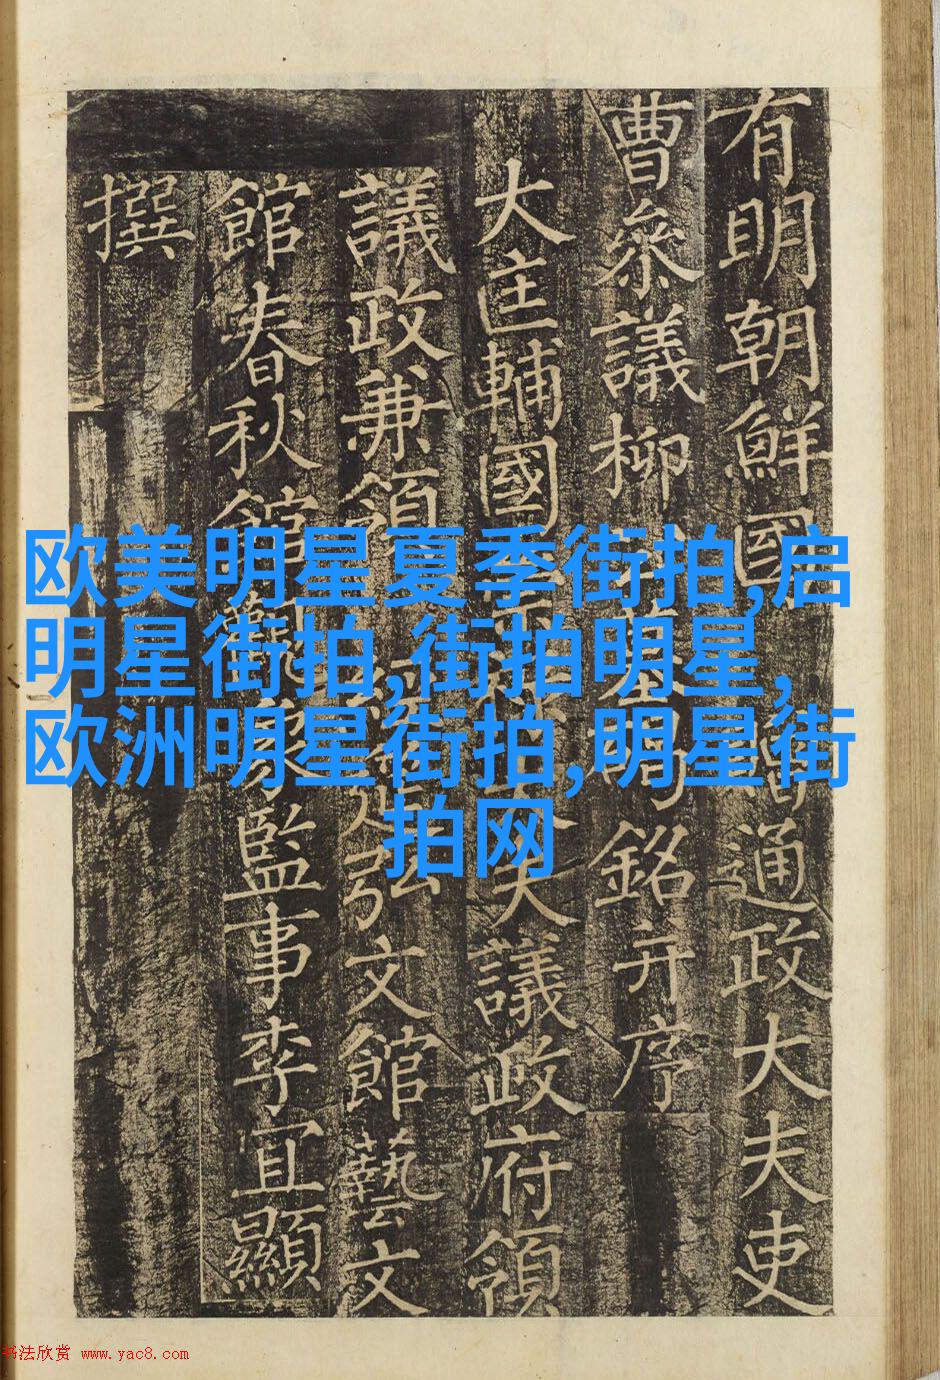 有明朝鮮國 通政大夫吏
曹參議柳 墓 銘并序
大匡輔國崇祿大夫議政府領
議政兼領經筵弘文館藝文
館春秋館觀象監事李宜顯
撰
欧美明星夏季街拍,启
明星街拍,街拍明星,
欧洲明星街拍,明星街
拍网
书法欣赏 www.yac8.com